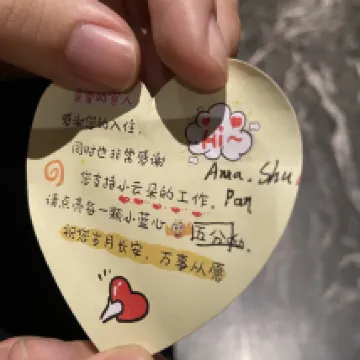 亲爱的客人
感谢您的入住,
Hi~
同时也非常感谢
Ama. Shu.
您支持小云朵的工作. Pan
请点亮每一颗小蓝心 五分
祝您岁月长安,万事从愿